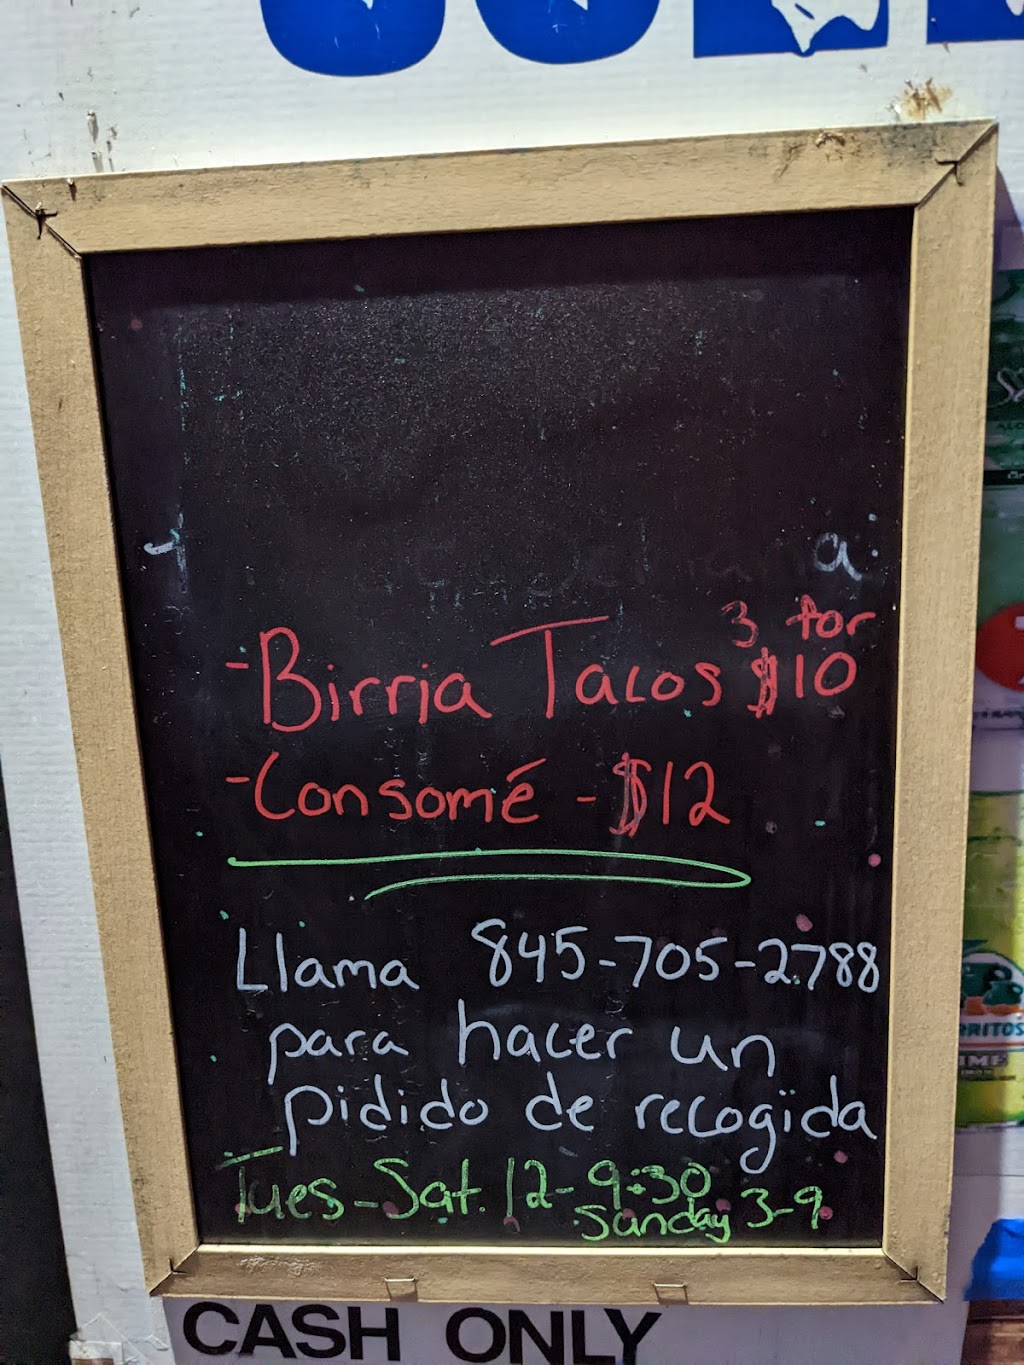 3 for
-Birria Tacos $10
-Consomé - $12
Llama 845-705-2788
para hacer un
pidido de recogida
Tues-Sat. 12-9:30
Sunday 3-9
CASH ONLY